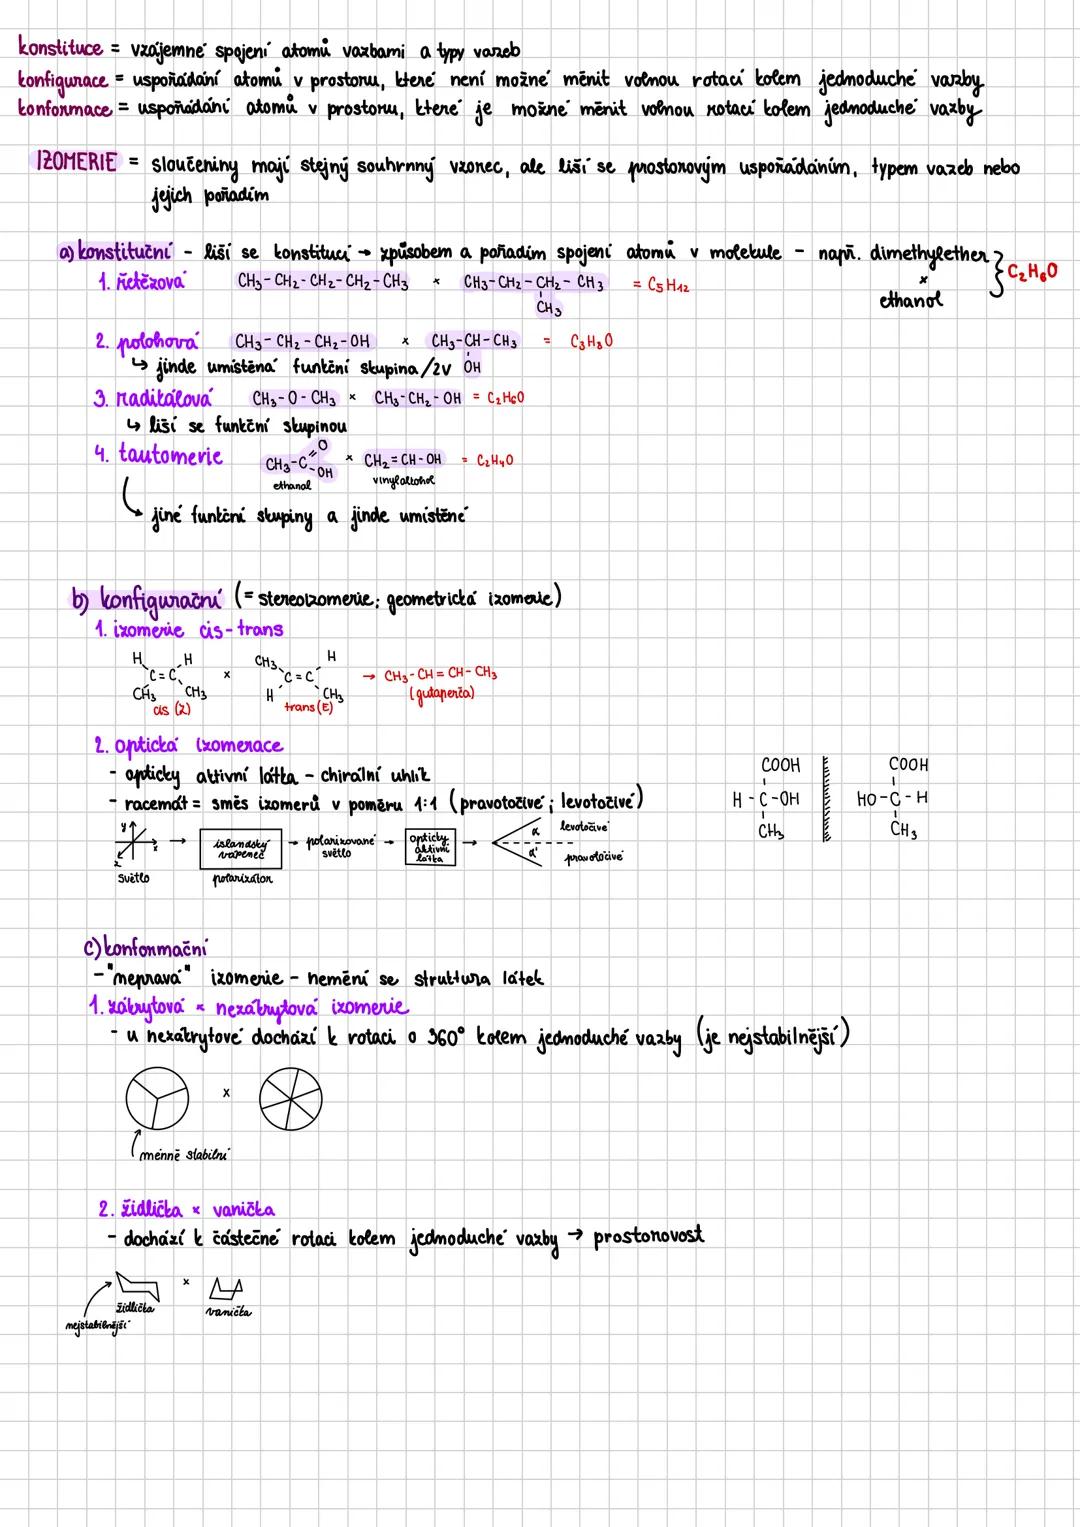 konstituce = vzájemné spojení atomů vazbami a typy vazeb
konfigurace = uspořádání atomů v prostoru, které není možné měnit volnou rotací kolem jednoduché vazby
konformace = uspořádání atomů v prostoru, které je možné měnit volnou rotací kolem jednoduché vazby
IZOMERIE = sloučeniny mají stejný souhrnný vzorec, ale liší se prostorovým uspořádáním, typem vazeb nebo
jejich pořadím
a) konstituční - liší se konstitucí → způsobem a pořadím spojení atomů v molekule - např. dimethylether } C₂H₆O
x
ethanol
1. řetězová CH₃-CH₂-CH₂-CH₂-CH₃ x CH₃-CH₂-CH₂-CH₃ = C₅H₁₂
CH₃
2. polohová CH₃-CH₂-CH₂-OH x CH₃-CH-CH₃ = C₃H₈O
OH
↳ jinde umístěná funkční skupina/2v
3. radikálová CH₃-O-CH₃ x CH₃-CH₂-OH = C₂H₆O
↳ liší se funkční skupinou
4. tautomerie CH₃-C=O -OH x CH₂=CH-OH = C₂H₄O
ethanal vinylalkohol
↳ jiné funkční skupiny a jinde umístěné
b) konfigurační (= stereoizomerie; geometrická izomerie)
1. izomerie cis-trans
H H x CH₃ H
C=C C=C → CH₃-CH=CH-CH₃
CH₃ CH₃ H CH₃ (gutaperča)
cis (Z) trans (E)
2. optická izomerace
- opticky aktivní látka - chirální uhlík
- racemát = směs izomerů v poměru 1:1 (pravotočivé; levotočivé)
COOH COOH
H-C-OH HO-C-H
CH₃ CH₃
y x z → islandský vápenec → polarizované světlo → opticky aktivní látka → α levotočivé
α' pravotočivé
světlo polarizátor
c) konformační
- "nepravá" izomerie - nemění se struktura látek
1. zákrytová x nezákrytová izomerie
- u nezákrytové dochází k rotaci o 360° kolem jednoduché vazby (je nejstabilnější)
x
méně stabilní
2. židlička x vanička
- dochází k částečné rotaci kolem jednoduché vazby → prostorovost
x
židlička vanička
nejstabilnější